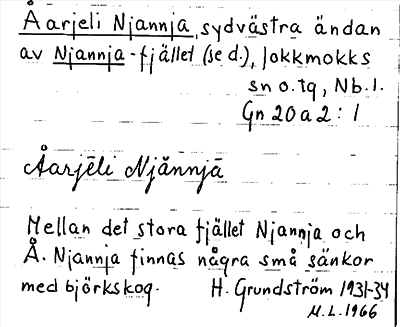 Åarjeli Njannja, sydvästra ändan
av Njannja-fjället (se d.), Jokkmokks
sn o. tg, Nb. l.
Gn 20 a 2 : 1
Åarjēli Njǎnnjā
Mellan det stora fjället Njannja och
Å. Njannja finnas några små sänkor
med björkskog. H. Grundström 1931-34
M. L. 1966